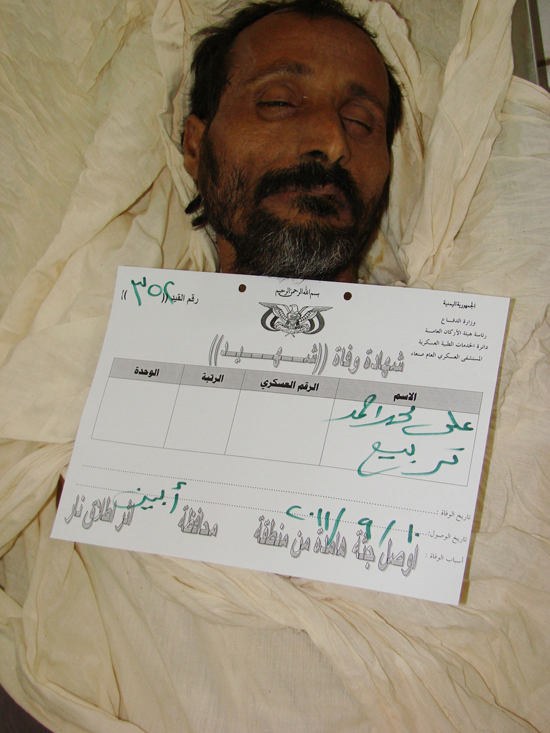 بسم الله الرحمن الرحيم
الجمهورية اليمنية
وزارة الدفاع
رئاسة هيئة الأركان العامة
دائرة الخدمات الطبية العسكرية
المستشفى العسكري العام صنعاء
رقم القيد ((٣٥٢))
شهادة وفاة ((شهيد))
الاسم الرقم العسكري الرتبة الوحدة
علي محمد احمد
تاريخ الوفاة :
تاريخ الوصول: ٢٠١١/٩/١٠
أسباب الوفاة : اوصل جثة هامدة من منطقة محافظة أبين اثر اطلاق نار